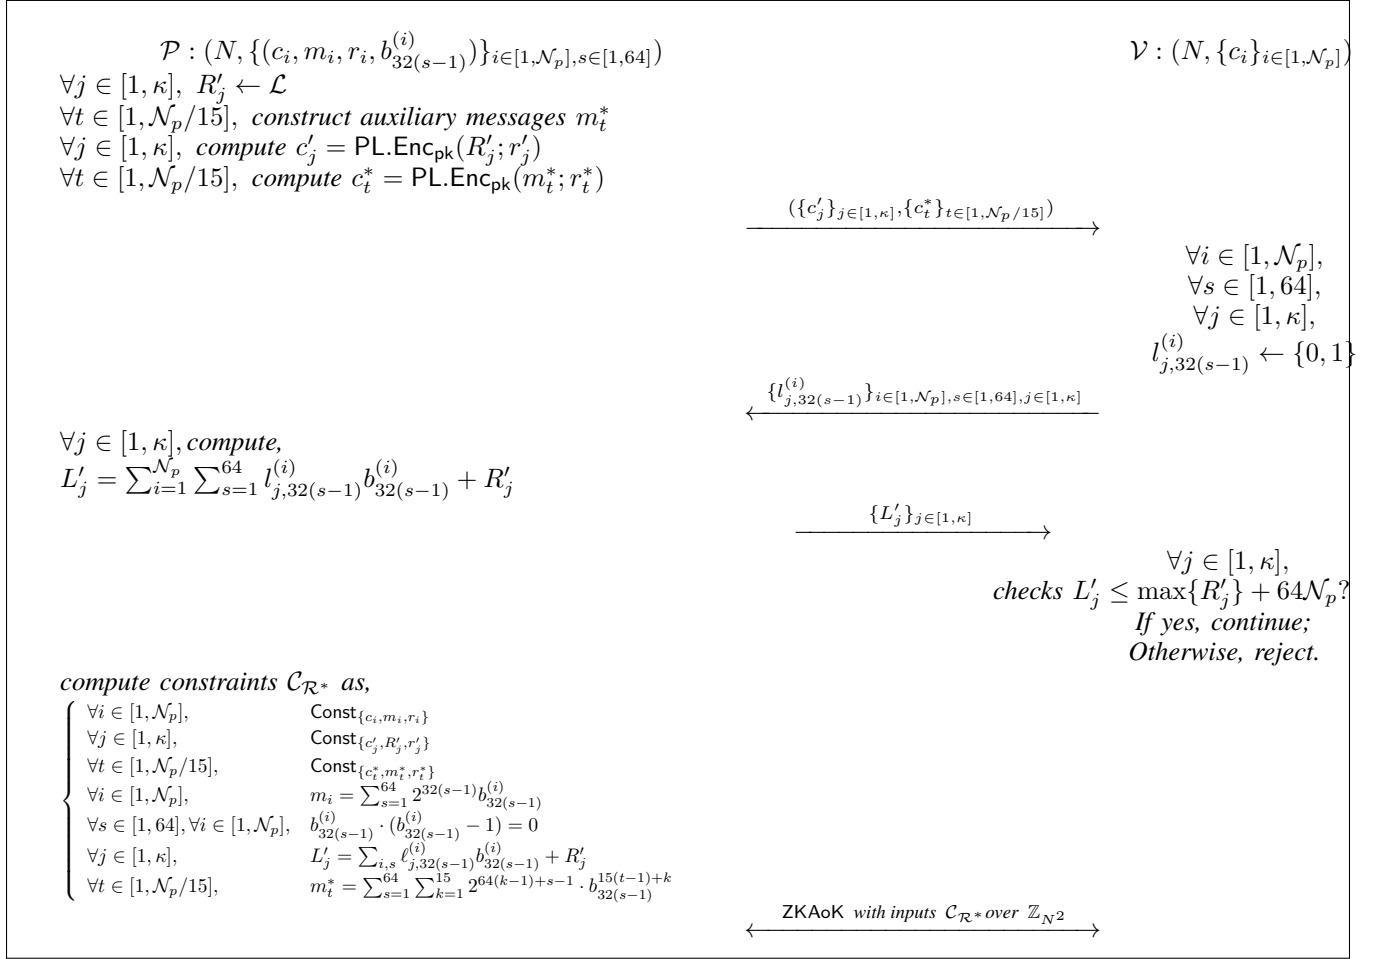 𝒫 : (N, {(c_i, m_i, r_i, b^{(i)}_{32(s−1)})}_{i∈[1,𝒩_p],s∈[1,64]})
𝒱 : (N, {c_i}_{i∈[1,𝒩_p]})
∀j ∈ [1, κ], R′_j ← ℒ
∀t ∈ [1, 𝒩_p/15], construct auxiliary messages m^*_t
∀j ∈ [1, κ], compute c′_j = PL.Enc_{pk}(R′_j; r′_j)
∀t ∈ [1, 𝒩_p/15], compute c^*_t = PL.Enc_{pk}(m^*_t; r^*_t)
({c′_j}_{j∈[1,κ]},{c^*_t}_{t∈[1,𝒩_p/15]})
∀i ∈ [1, 𝒩_p],
∀s ∈ [1, 64],
∀j ∈ [1, κ],
l^{(i)}_{j,32(s−1)} ← {0, 1}
{l^{(i)}_{j,32(s−1)}}_{i∈[1,𝒩_p],s∈[1,64],j∈[1,κ]}
∀j ∈ [1, κ], compute,
L′_j = ∑_{i=1}^{𝒩_p} ∑_{s=1}^{64} l^{(i)}_{j,32(s−1)} b^{(i)}_{32(s−1)} + R′_j
{L′_j}_{j∈[1,κ]}
∀j ∈ [1, κ],
checks L′_j ≤ max{R′_j} + 64𝒩_p?
If yes, continue;
Otherwise, reject.
compute constraints 𝒞_{ℛ^*} as,
∀i ∈ [1, 𝒩_p], Const_{{c_i,m_i,r_i}}
∀j ∈ [1, κ], Const_{{c′_j,R′_j,r′_j}}
∀t ∈ [1, 𝒩_p/15], Const_{{c^*_t,m^*_t,r^*_t}}
∀i ∈ [1, 𝒩_p], m_i = ∑_{s=1}^{64} 2^{32(s−1)} b^{(i)}_{32(s−1)}
∀s ∈ [1, 64], ∀i ∈ [1, 𝒩_p], b^{(i)}_{32(s−1)} · (b^{(i)}_{32(s−1)} − 1) = 0
∀j ∈ [1, κ], L′_j = ∑_{i,s} ℓ^{(i)}_{j,32(s−1)} b^{(i)}_{32(s−1)} + R′_j
∀t ∈ [1, 𝒩_p/15], m^*_t = ∑_{s=1}^{64} ∑_{k=1}^{15} 2^{64(k−1)+s−1} · b^{15(t−1)+k}_{32(s−1)}
ZKAoK with inputs 𝒞_{ℛ^*} over ℤ_{N^2}